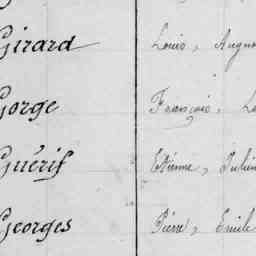 Girard Louis, Augus
Gorge François, Lo
Guérif Etienne, Julien
Georges Pierre, Emile